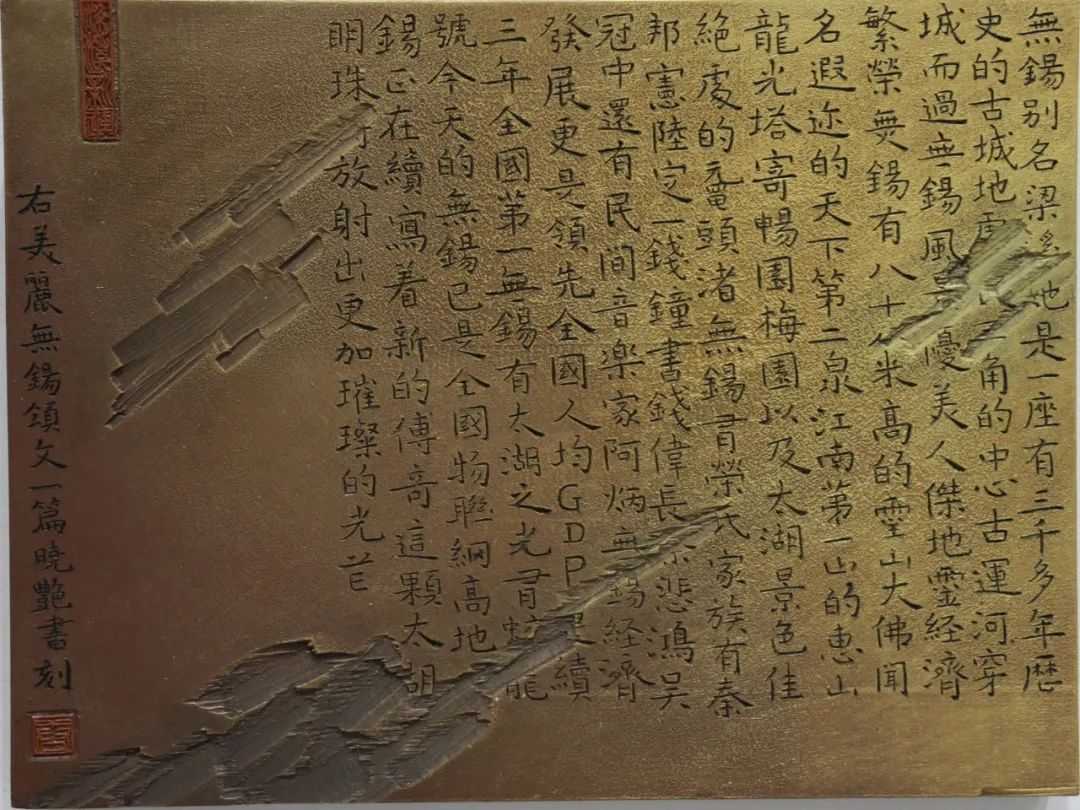 無錫别名梁溪她是一座有三千多年歷
史的古城地處長三角的中心古運河穿
城而過無錫風景優美人傑地靈経濟
繁榮無錫有八十八米高的靈山大佛聞
名遐迩的天下第二泉江南第一山的惠山
龍光塔寄暢園梅園以及太湖景色佳
絶處的黿頭渚無錫有榮氏家族有秦
邦憲陸定一錢鐘書錢偉長徐悲鴻吳
冠中還有民間音楽家阿炳無錫経濟
發展更是領先全國人均GDP連續
三年全國第一無錫有太湖之光有蛟龍
號今天的無錫已是全國物聯網高地
錫正在續寫着新的傳奇這顆太湖
明珠放射出更加璀璨的光芒
右美麗無錫頌文一篇曉艷書刻